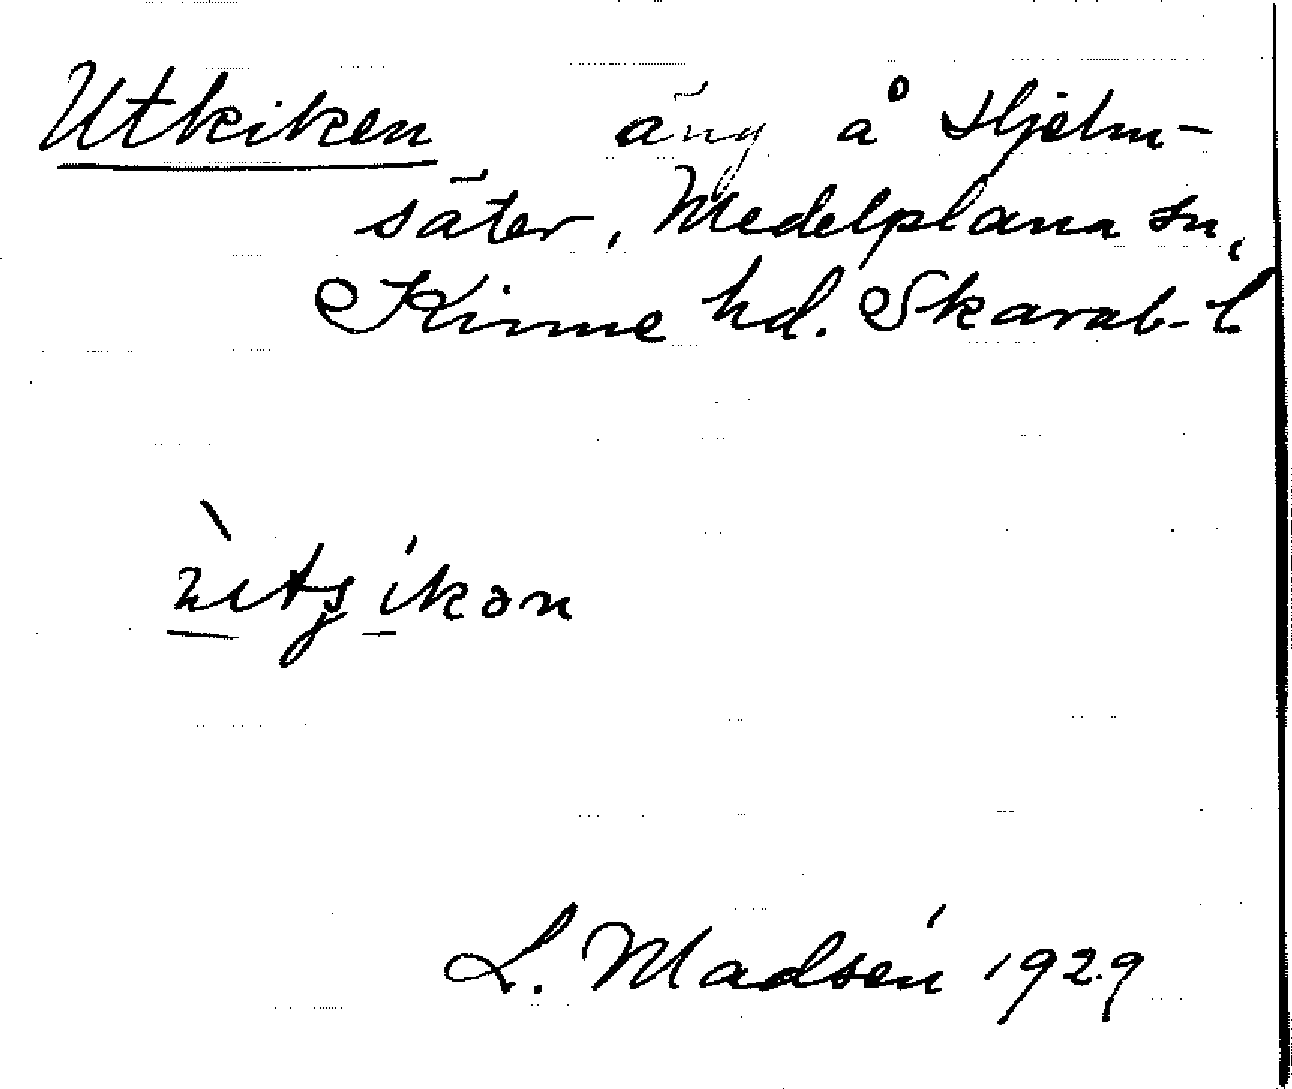 Utkiken äng å Hjelm-
säter, Medelplana sn,
Kinne hd. Skarab. l.
L. Madsén 1929